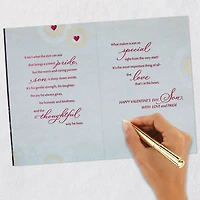 It isn't what the son can see
that brings a loving pride,
but the warm and caring person
a son is deep down inside.
It's his gentle strength, his laughter,
the joy he always gives,
his honesty and kindness,
and the thoughtful
way he lives.
What makes a son so
special
right from the very start?
It's the most important thing of all–
the love
that's in his heart.
HAPPY VALENTINE'S DAY, Son,
WITH LOVE AND PRIDE